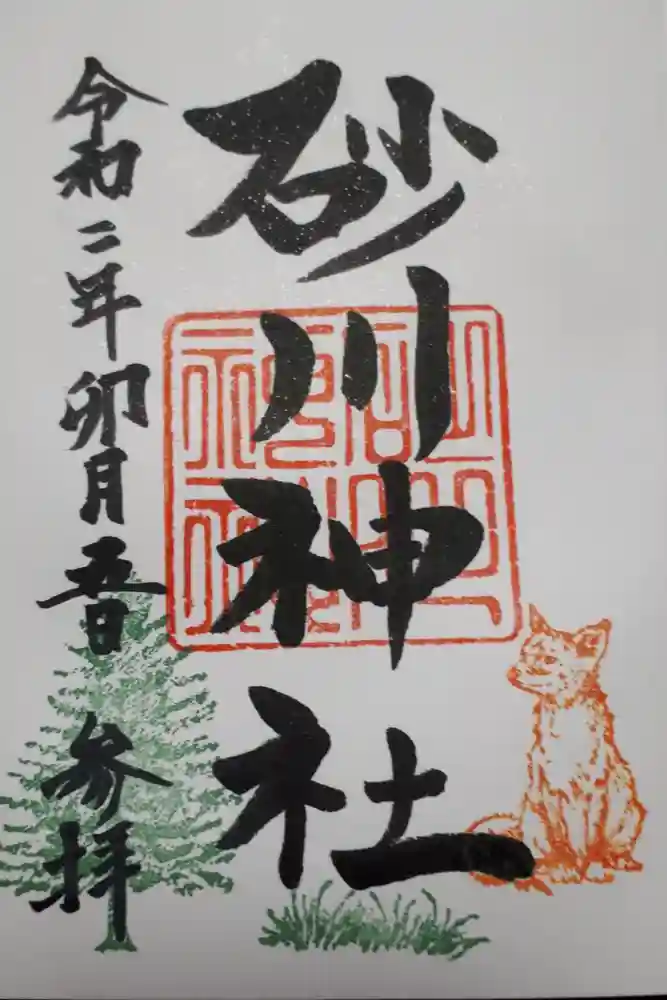 砂川神社
令和二年卯月吾日
参拝